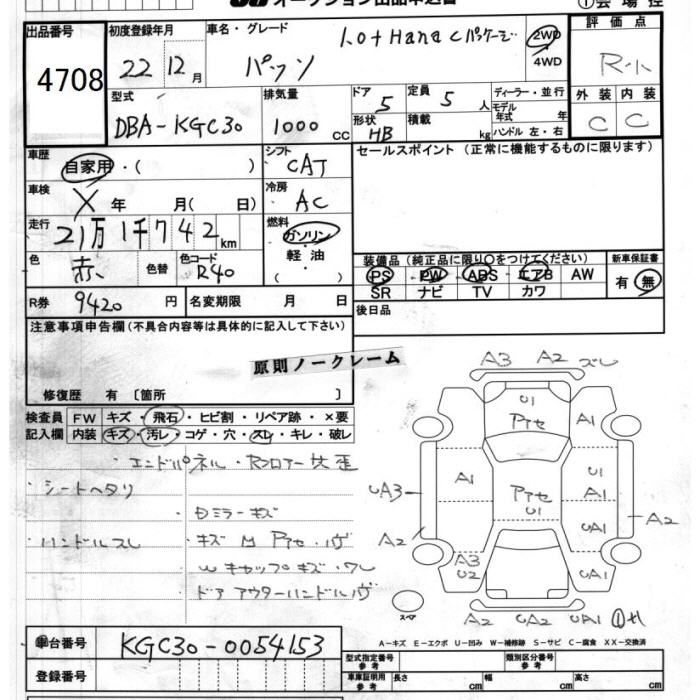 出品番号
4708
初度登録年月
22 12月
車名・グレード
パッソ
1.0+Hana Cパッケージ
2WD
4WD
評価点
R
型式
DBA-KGC30
排気量
1000 CC
ドア 5
形状 HB
定員 5 人
積載 kg
ディーラー・並行
モデル年式 年
ハンドル 左・右
外装 内装
C C
車歴
自家用・( )
シフト
CAT
車検
X 年 月( 日)
冷房
AC
走行
21万1千742km
燃料
ガソリン
軽油
( )
色
赤
色替
色コード
R40
R券 9420 円
名変期限 月 日
セールスポイント(正常に機能するものに限ります)
装備品(純正品に限り○をつけてください)
PS PW ABS エアB AW
SR ナビ TV カワ
新車保証書
有 無
後日品
注意事項申告欄(不具合内容等は具体的に記入して下さい)
原則ノークレーム
修復歴 有〔箇所 〕
検査員記入欄
FW キズ・飛石・ヒビ割・リペア跡・×要
内装 キズ・汚レ・コゲ・穴・スレ・キレ・破レ
エンドパネル・Rフロアー 歪
シートヘタリ
Dミラーキズ
ハンドルスレ
キズ M アセ・ハゲ
W キャップキズ・ワレ
ドアアウターハンドルハゲ
A3 A2 ズレ
U1
アセ
A1
A1
UA3
アセ
U1
U1
A1
A2
UA1
A2
A3
U2
UA1
スペア
A2 UA2 UA1
車台番号
KGC30-0054153
登録番号
A-キズ E-エクボ U-凹み W-補修跡 S-サビ C-腐食 XX-交換済
型式指定番号
参考
類別区分番号
参考
車庫証明用
参考
長さ cm
幅 cm
高さ cm